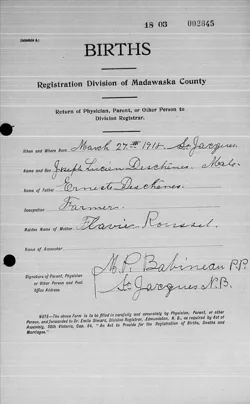 18 03 002845
(SCHEDULE A.)
BIRTHS
Registration Division of Madawaska County
Return of Physician, Parent, or Other Person to
Division Registrar.
When and Where Born March 27th 1918 St Jacques
Name and Sex Joseph Lucien Deschênes. Male
Name of Father Ernest Deschênes.
Occupation Farmer.
Maiden Name of Mother Flavie Roussel.
Name of Accoucher
M. P. Babineau P.P.
Signature of Parent, Physician
or Other Person and Post
Office Address
St Jacques N.B.
NOTE.—The above Form is to be filled in carefully and accurately by Physician, Parent, or other
Person, and forwarded to Dr. Emile Simard, Division Registrar, Edmundston, N. B., as required by Act of
Assembly, 50th Victoria, Cap. 54, "An Act to Provide for the Registration of Births, Deaths and
Marriages."